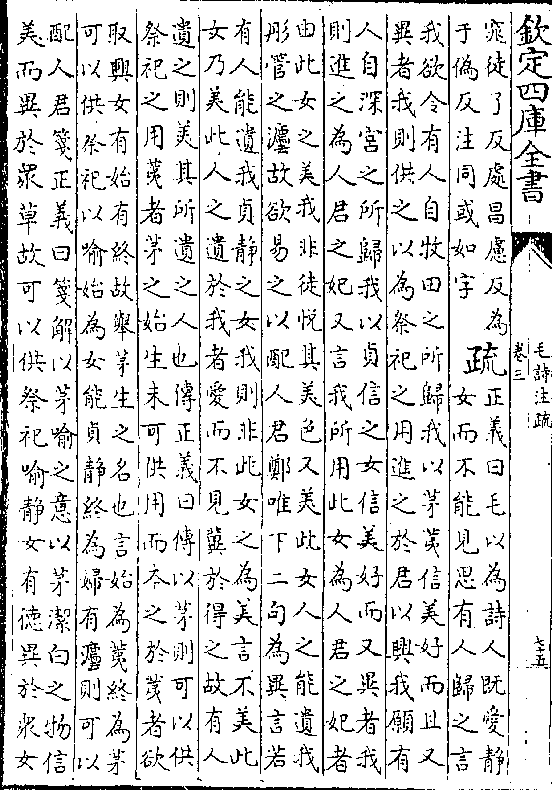 欽定四庫全書
毛詩注疏
卷三
七十五
窕徒了反處昌慮反為
于偽反注同或如字
疏
正義曰毛以為詩人既愛静
女而不能見思有人歸之言
我欲令有人自牧田之所歸我以茅荑信美好而且又
異者我則供之以為祭祀之用進之於君以興我願有
人自深宫之所歸我以貞信之女信美好而又異者我
則進之為人君之妃又言我所用此女為人君之妃者
由此女之美我非徒悦其美色又美此女人之能遺我
彤管之灋故欲易之以配人君鄭唯下二句為異言若
有人能遺我貞静之女我則非此女之為美言不美此
女乃美此人之遺於我者愛而不見冀於得之故有人
遺之則美其所遺之人也傳正義曰傳以茅則可以供
祭祀之用荑者茅之始生未可供用而夲之於荑者欲
取興女有始有終故舉茅生之名也言始為荑終為茅
可以供祭祀以喻始為女能貞静終為婦有灋則可以
配人君箋正義曰箋解以茅喻之意以茅潔白之物信
美而異於衆草故可以供祭祀喻静女有德異於衆女